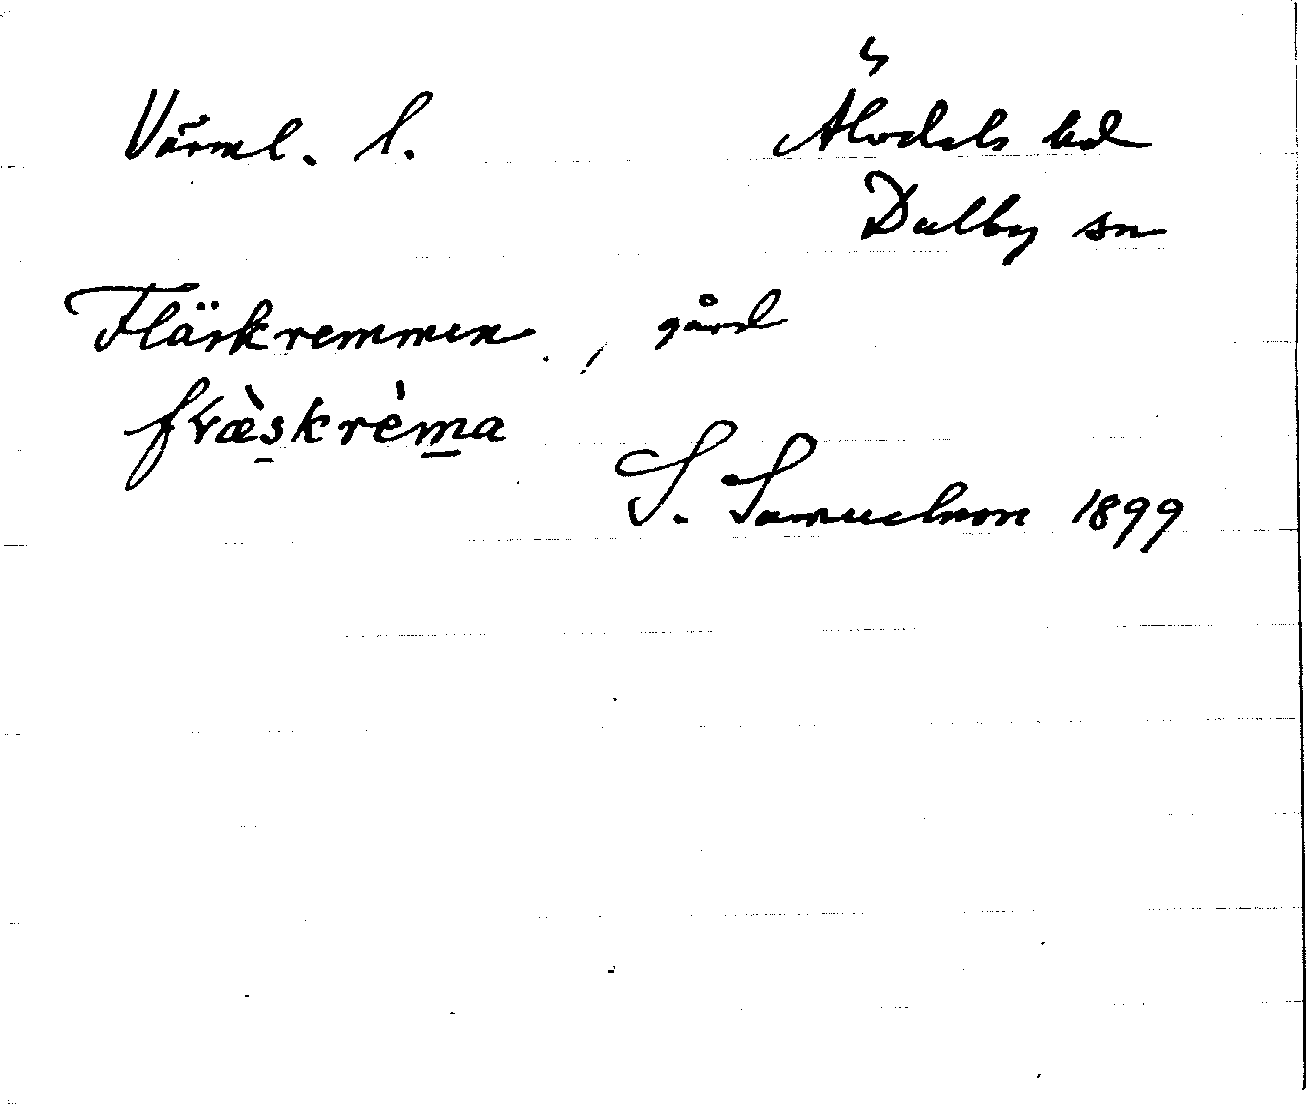 Värml. l. Älvdals hd
Dalby sn
Fläskremmen, gård
fræ̀skrèma
S. Samuelson 1899